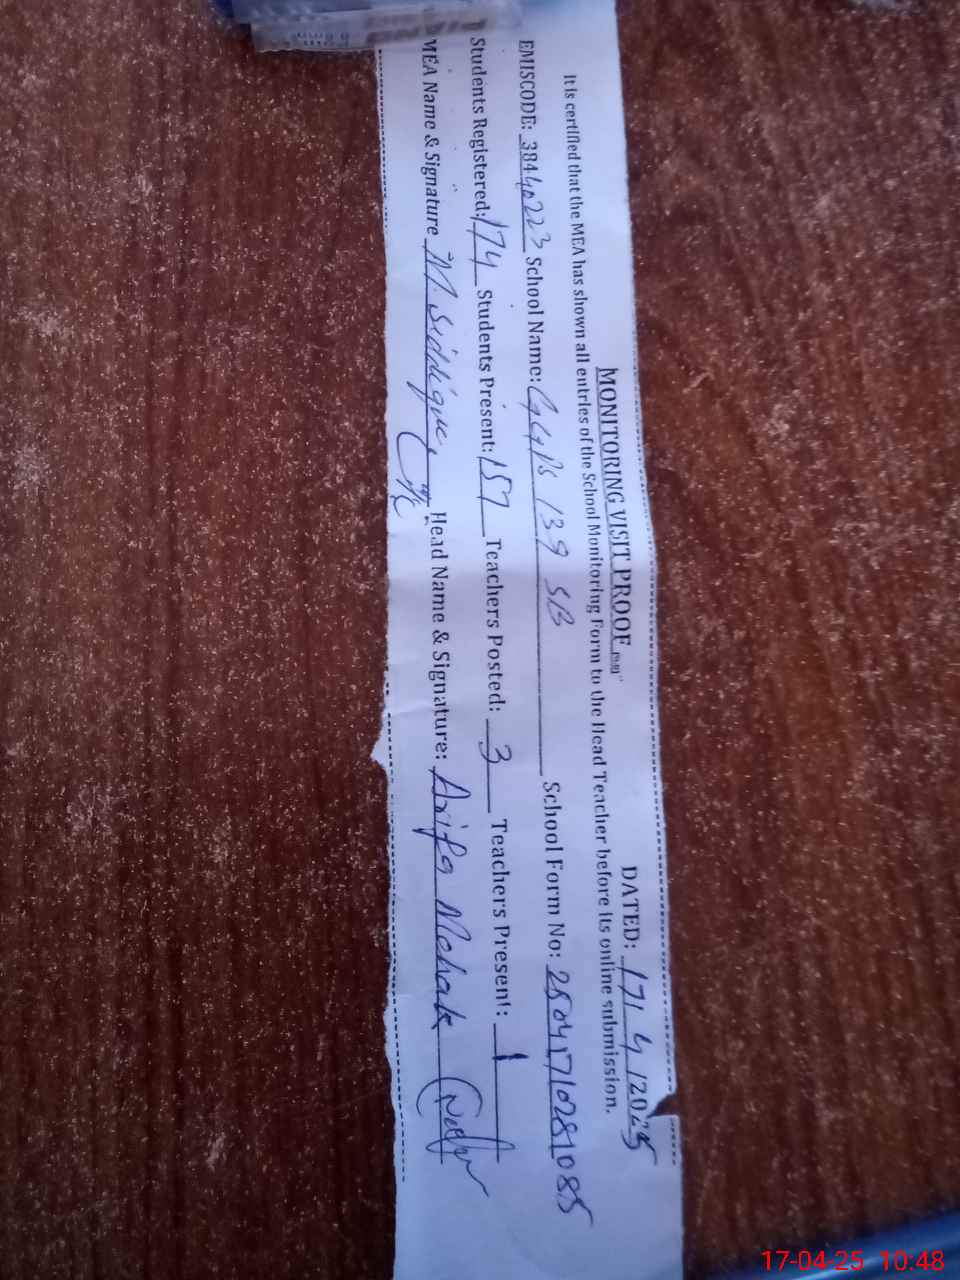 MONITORING VISIT PROOF
DATED: 17/4/2025
It is certified that the MEA has shown all entries of the School Monitoring Form to the Head Teacher before its online submission.
EMISCODE: 38440223 School Name: GGPS 139 SB School Form No: 25041710281085
Students Registered: 174 Students Present: 157 Teachers Posted: 3 Teachers Present: 1
MEA Name & Signature M. Siddique Head Name & Signature: Arifa Mehak
17-04-25 10:48